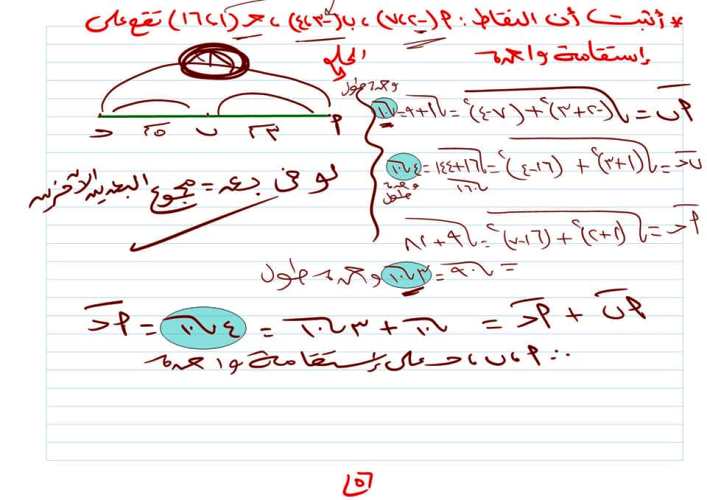 * أثبت أن النقاط: ٢(-٢،٧)، ب(-٣،٤)، حـ(١،١٦) تقع على
إستقامة واحدة
الحل
وحدة طول
٢ب = √(-٢+٣)² + (٧-٤)² = √١+٩ = √١٠
بحـ = √(١+٣)² + (١٦-٤)² = √١٦+١٤٤ = ٤√١٠
√١٦٠
وحدة طول
٢حـ = √(١+٢)² + (١٦-٧)² = √٩+٨١
= √٩٠ = ٣√١٠ وحدة طول
حـ ب ٢
√٥ √٣٣
لو في بعد = مجموع البعدين الآخرين
٢ب + ٢حـ = √١٠ + ٣√١٠ = ٤√١٠ = ٢حـ
∴ ٢، ب، حـ على إستقامة واحدة